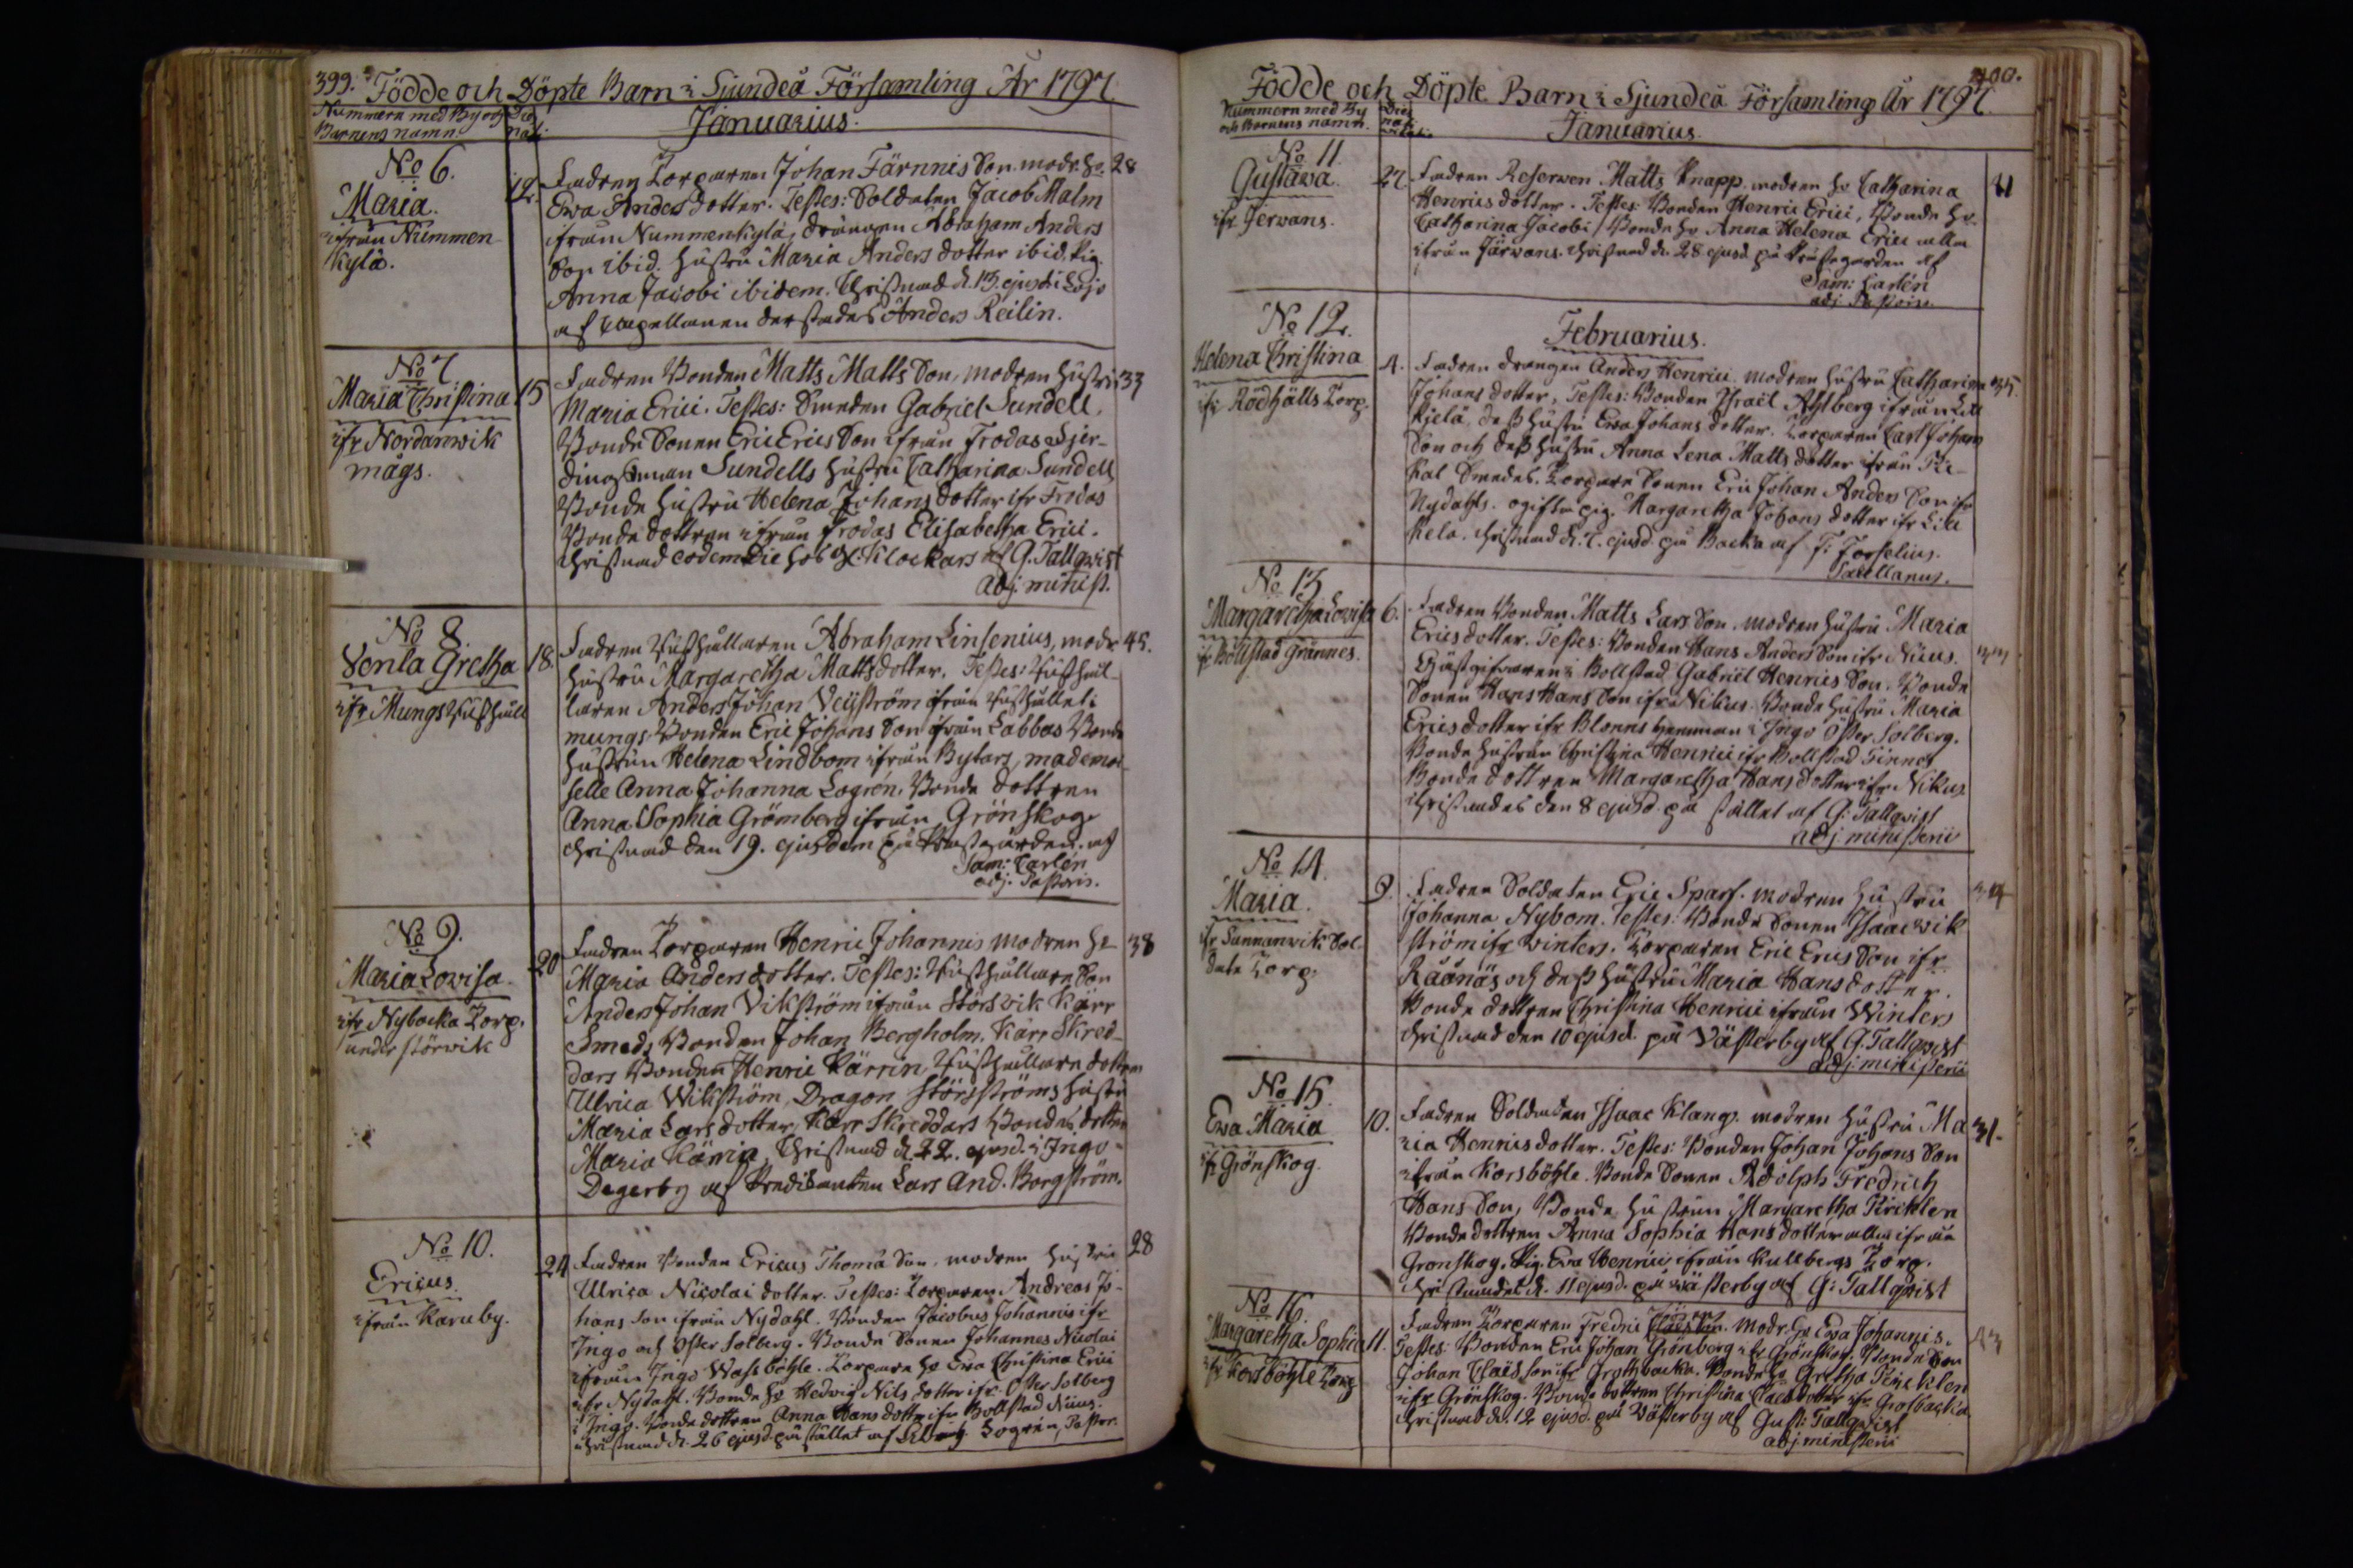 399. Födde och Döpte Barn i Sjundeå Församling År 1797
Nummern med By och Dies
Barnens namn. nat.
Januarius.
No 6.
Maria.
ifrån Nummen-
kylä.
12.
Fadren Torparen Johan Färnnis Son. modr. H: 28
Ewa Anders dotter. Testes: Soldaten Jacob Malm
ifrån Nummenkylä, drängen Abraham Anders
Son ibid. hustru Maria Anders dotter ibid. Pig.
Anna Jacobi ibidem. Christnad d. 13. ejusd. i Lojo
af Capellanen derstädes Anders Reilin.
No 7
Maria Christina
ifr Nordanwik
mågs.
15
Fadren Bonden Matts Matts Son, modren hustru 33
Maria Erici. Testes: Smeden Gabriel Sundell,
Bonde Sonen Eric Erics Son ifrån Frodas Fjer-
dingsman Sundells hustru Catharina Sundell
Bonde hustru Helena Johans dotter ifr Frodas
Bonde dottren ifrån Frodas Elisabetha Erici.
Christnad eodem die hos Klockars af G. Tallqvist
adj. minist.
No 8
Venla Gretha
ifr Mungs Rusthåll
18.
Fadren Rusthållaren Abraham Linsenius, modr 45.
hustru Margaretha Matts dotter. Testes: Rusthål-
laren Anders Johan Veijström ifrån Rusthållet i
mungs, Bonden Eric Johans Son ifrån Labbas Bonde
hustrun Helena Lindbom ifrån Bylars, mademoi-
selle Anna Johanna Logrén, Bonde dottren
Anna Sophia Grömberg ifrån Grönskog.
Christnad den 19. ejusdem på Prästgården af
Sam: Carlén
adj. Pastoris.
No 9.
Maria Lovisa.
ifr Nybacka Torp.
under störwik
20
Fadren Torparen Henric Johannis modren H: 38
Maria Anders dotter. Testes: Rusthållare Son
Anders Johan Vikström ifrån Störsvik Kärr
Smeds Bonden Johan Bergholm. Karr Skred-
dars Bonden Henric Kärrin, Rusthållare dottren
Ulrica Wikström, Dragon Störsströms hustru
Maria Lars dotter, Kärr Skreddars Bondes dotter
Maria Kärria, Christnad d. 22. ejusd. i Ingo
Degerby af Predikanten Lars And. Borgström.
No 10.
Ericus.
ifrån Karuby.
24
Fadren Bonden Ericus Thomæ Son, modren hustru 28
Ulrica Nicolai dotter. Testes: Torparen Andreas Jo-
hans Son ifrån Nydahl. Bonden Jacobus Johannis ifr
Ingo och Öster Solberg. Bonde Sonen Johannes Nicolai
ifrån Ingo Wassböhle. Torpare H: Ewa Christina Erici
ifr Nydahl. Bonde H: Hedwig Nils dotter ifr. Öster Solberg
i Ingo. Bonde dottren Anna Hans dotter ifr Bollstad Nius.
Christnad d. 26 ejusd. på stället af Logrén, Pastor.
400.
Födde och Döpte Barn i Sjundeå Församling År 1797.
Nummern med By Dies
och Barnens namn. nat.
Januarius.
No 11.
Gustava.
ifr Jerwans.
27.
Fadren Reserven Matts Knapp. modren H: Catharina 41
Henrics dotter. Testes: Bonden Henric Erici, Bonde H:
Catharina Jacobi, Bonde H: Anna Helena Erici alla
ifrån Järwans. Christnad d. 28 ejusd. på Prästegården af
Sam: Carlén
adj. Pastoris.
Februarius.
No 12.
Helena Christina
ifr Rödhälls Torp.
4.
Fadren drängen Anders Henrici modren hustru Catharina 35.
Johans dotter, Testes: Bonden Israel Ahlberg ifrån Lill
Kjela, dess hustru Ewa Johans dotter. Torparen Carl Johans
Son och dess hustru Anna Lena Matts dotter ifrån Pi-
kal Smedes. Torpare Sonen Eric Johan Anders Son ifr
Nydahls. ogifta pig. Margaretha Johans dotter ifr Lill
Kela. Christnad d. 7. ejusd. på Backa af F: Forselius.
Sacellanus.
No 13
Margaretha Lovisa
ifr Bollstad Grännes.
6.
Fadren Bonden Matts Lars Son modren hustru Maria
Erics dotter. Testes: Bonden Hans Anders Son ifr Nius.
Gästgifvaren i Bollstad Gabriel Henrics Son. Bonde
Sonen Hans Hans Son ifrån Nikus. Bonde hustru Maria
Erics dotter ifr Blomns hemman i Ingo Öster Solberg.
Bonde hustrun Christina Henrici ifr Bollstad Finnes
Bonde dottren Margaretha Hans dotter ifr Nikus
Christnades den 8 ejusd. på stället af G: Tallqvist
adj. ministerii
No 14.
Maria.
ifr Sunnanwik Sol-
date Torp.
9.
Fadren Soldaten Eric Sparf. modren hustru
Johanna Nybom. Testes: Bonde Sonen Isaac wik
ström ifr winters. Torparen Eric Erics Son ifr
Räänäs och dess hustru Maria Hans dotter.
Bonde dottren Christina Henrici ifrån Winters
Christnad den 10 ejusd. på Västerby af G. Tallqvist
adj. ministerii
No 15.
Ewa Maria
ifr Grönskog.
10.
Fadren Soldaten Isaac Klang. modren hustru Ma 31.
ria Henrics dotter. Testes: Bonden Johan Johans Son
ifrån Korsböhle. Bonde Sonen Adolph Fredrich
Hans Son, Bonde hustrun Margaretha Piriklen
Bonde dottren Anna Sophia Hans dotter alla ifrån
Gronskog. Pig. Eva Henrici ifrån Kullbergs Torp.
Christnades d. 11 ejusd. på wästerby af G: Tallqvist
No 16.
Margaretha Sophia
ifr Korsböhle Torp
11.
Fadren Torparen Fredric Modr. H: Ewa Johannis.
Testes: Bonden Eric Johan Grönberg ifr Grönskog. Bonde Son
Johan Claës Son ifr Grothbacka. Bonde H: Gretha Piricklen
ifr Grönskog. Bonde dottren Christina Claes dotter ifr Grotbacka
Christnad d. 12 ejusd. på Västerby af Gust: Tallqvist
adj ministerii